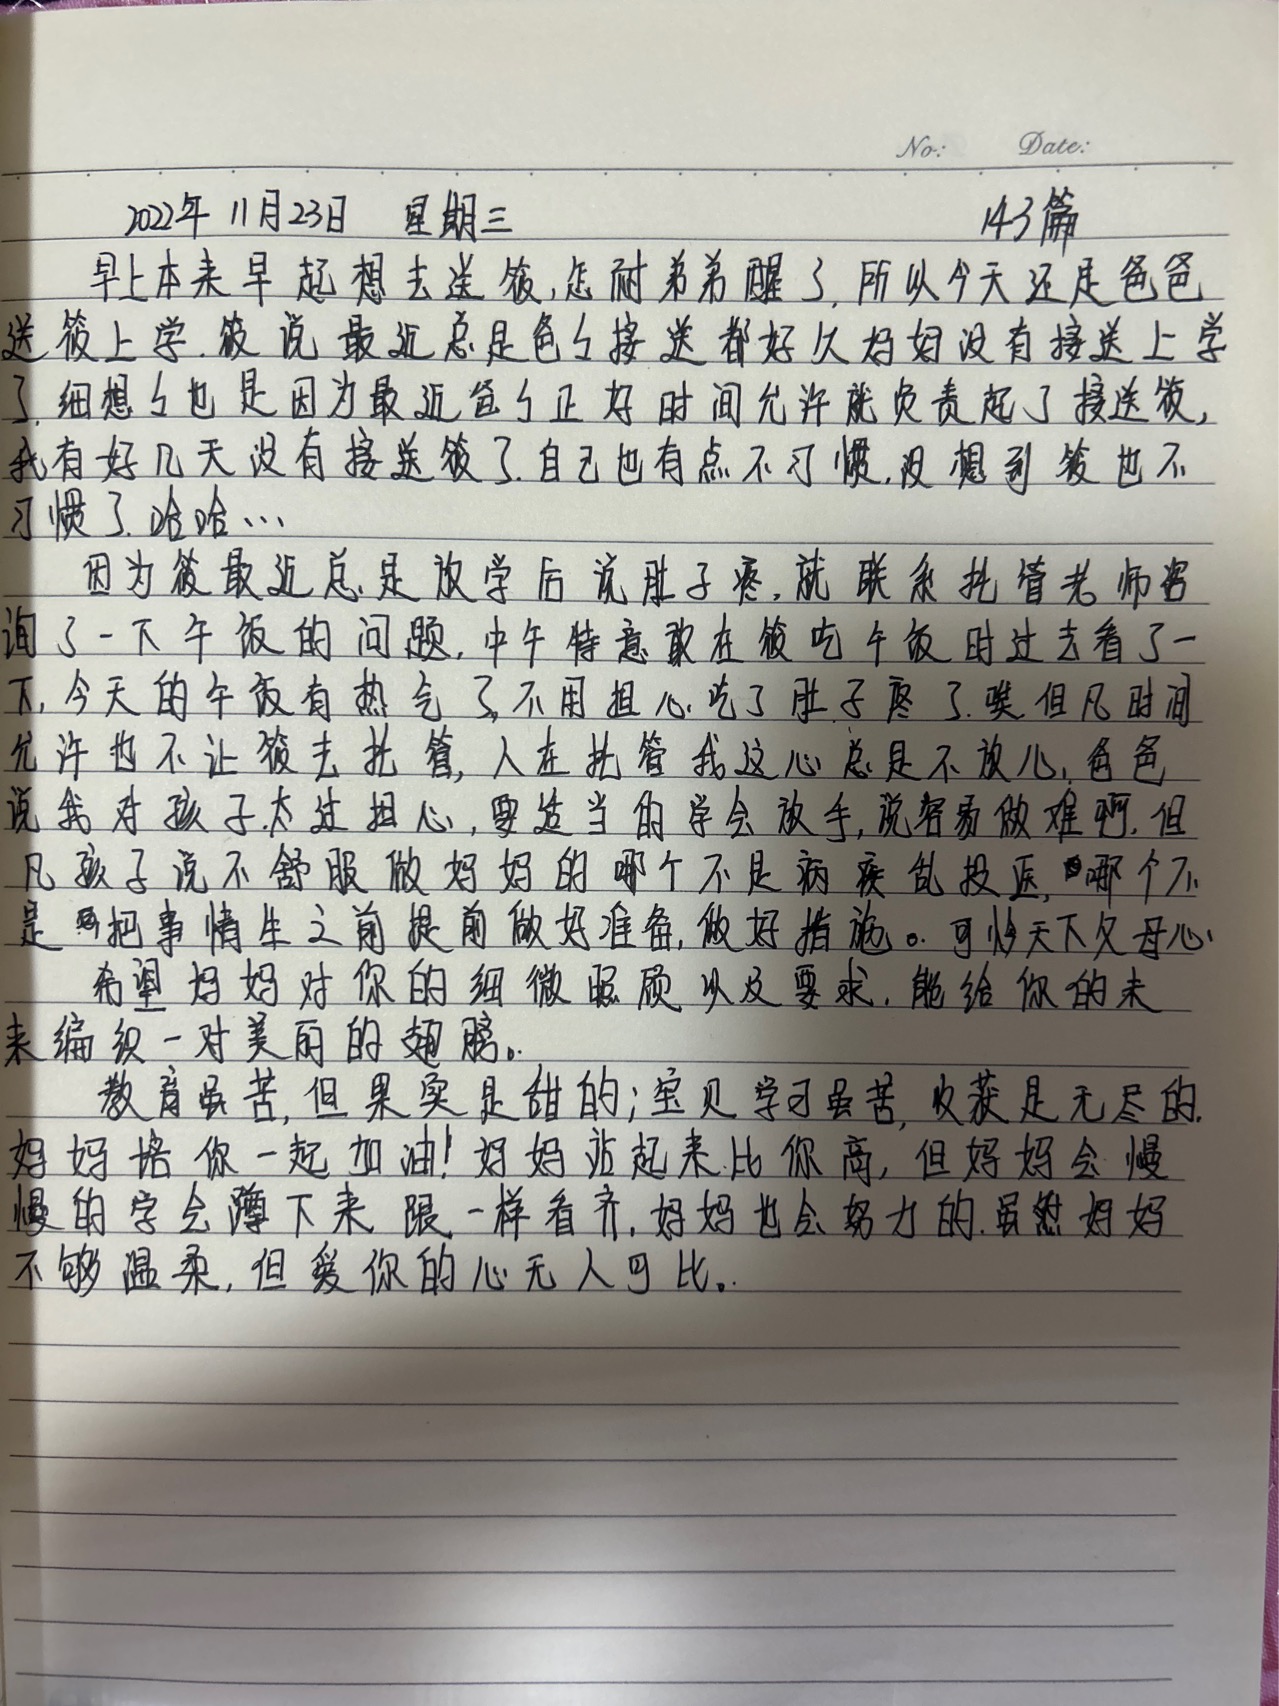 No: Date:
2022年11月23日 星期三 143篇
早上本来早起想去送筱,怎耐弟弟醒了,所以今天还是爸爸
送筱上学.筱说最近总是爸々接送都好久妈妈没有接送上学
了.细想々也是因为最近爸々正好时间允许就负责起了接送筱,
我有好几天没有接送筱了.自己也有点不习惯,没想到筱也不
习惯了.哈哈…
因为筱最近总是放学后说肚子疼,就联系托管老师咨
询了一下午饭的问题,中午特意敢在筱吃午饭时过去看了一
下,今天的午饭有热气了,不用担心吃了肚子疼了.唉但凡时间
允许也不让筱去托管,人在托管我这心总是不放心,爸爸
说我对孩子太过担心,要适当的学会放手,说容易做难啊.但
凡孩子说不舒服做妈妈的哪个不是病疾乱投医,哪个不
是把事情生之前提前做好准备,做好措施。可怜天下父母心
希望妈妈对你的细微照顾以及要求,能给你的未
来编织一对美丽的翅膀。
教育虽苦,但果实是甜的;宝贝学习虽苦,收获是无尽的.
妈妈培你一起加油!妈妈站起来比你高,但妈妈会慢
慢的学会蹲下来跟一样看齐,妈妈也会努力的.虽然妈妈
不够温柔,但爱你的心无人可比。